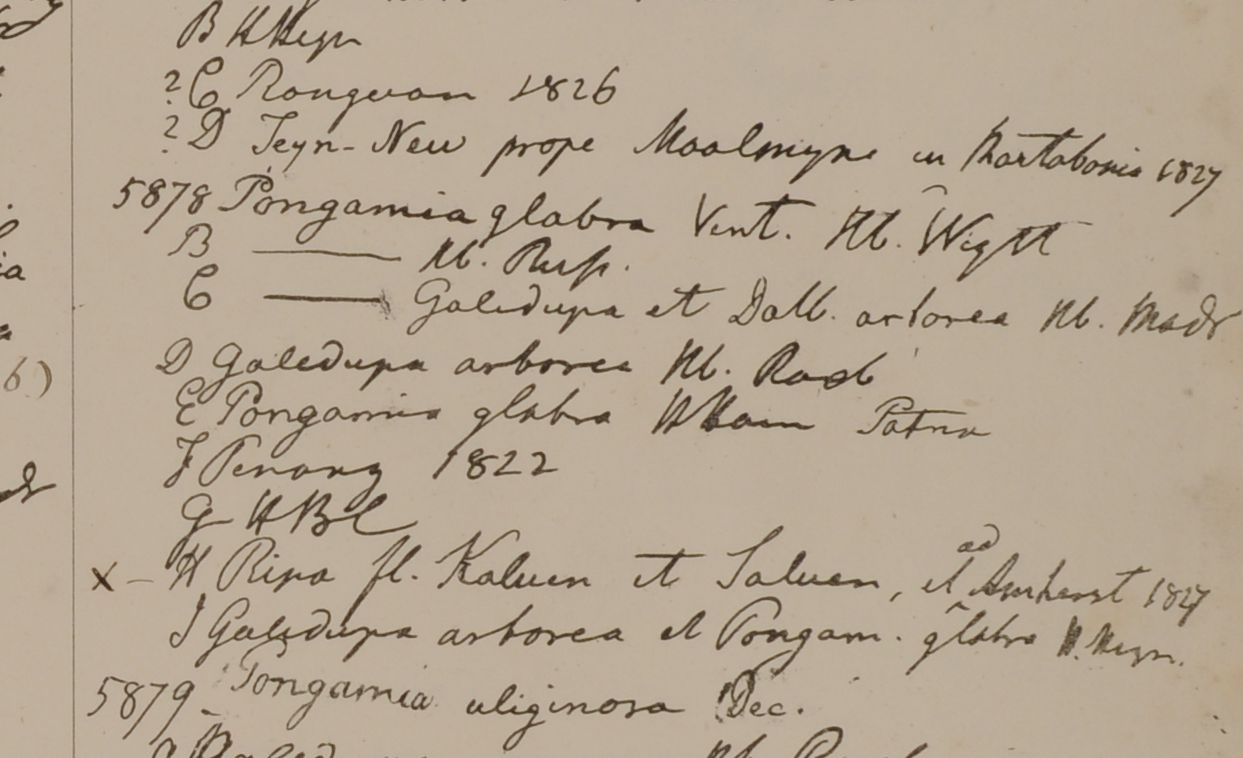 B H Heyn
? C Rangoon 1826
? D Teyn-New prope Moalmyne in Martabania 1827
5878 Pongamia glabra Vent. Hb. Wight
B —— Hb. Russ.
C —— Galedupa et Dalb. arborea Hb. Madr
D Galedupa arborea Hb. Roxb
E Pongamia glabra H Ham Patna
F Penang 1822
G HBC
x – H Ripa fl. Kaluen et Saluen, et ad Amherst 1827
I Galedupa arborea et Pongam. glabra H. Heyn.
5879 – Pongamia uliginosa Dec.